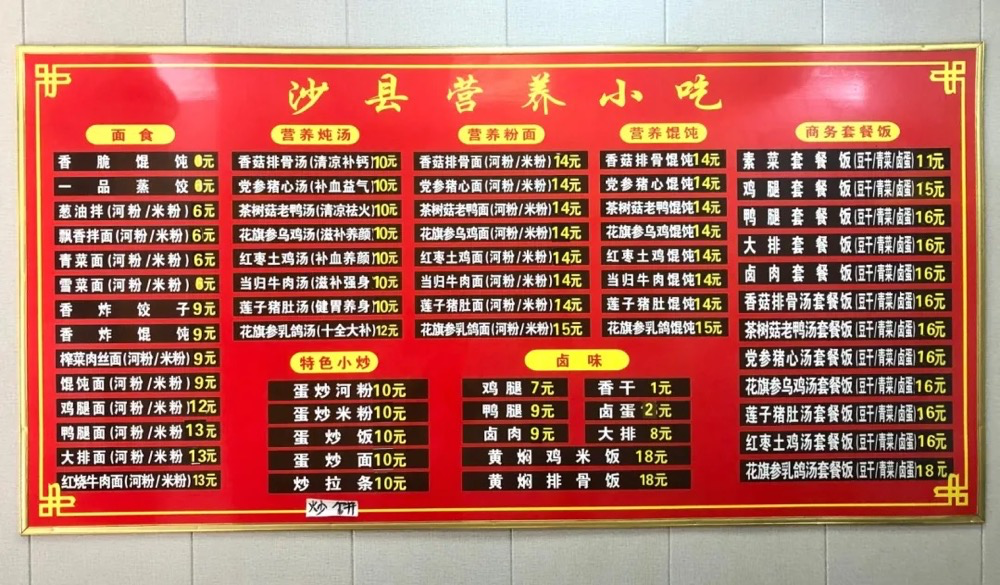 沙县营养小吃
面食
香脆馄饨 6元
一品蒸饺 6元
葱油拌(河粉/米粉) 6元
飘香拌面(河粉/米粉) 6元
青菜面(河粉/米粉) 6元
雪菜面(河粉/米粉) 6元
香炸饺子 9元
香炸馄饨 9元
榨菜肉丝面(河粉/米粉) 9元
馄饨面(河粉/米粉) 9元
鸡腿面(河粉/米粉) 12元
鸭腿面(河粉/米粉) 13元
大排面(河粉/米粉) 13元
红烧牛肉面(河粉/米粉) 13元
营养炖汤
香菇排骨汤(清凉补钙) 10元
党参猪心汤(补血益气) 10元
茶树菇老鸭汤(清凉祛火) 10元
花旗参乌鸡汤(滋补养颜) 10元
红枣土鸡汤(补血养颜) 10元
当归牛肉汤(滋补强身) 10元
莲子猪肚汤(健胃养身) 10元
花旗参乳鸽汤(十全大补) 12元
营养粉面
香菇排骨面(河粉/米粉) 14元
党参猪心面(河粉/米粉) 14元
茶树菇老鸭面(河粉/米粉) 14元
花旗参乌鸡面(河粉/米粉) 14元
红枣土鸡面(河粉/米粉) 14元
当归牛肉面(河粉/米粉) 14元
莲子猪肚面(河粉/米粉) 14元
花旗参乳鸽面(河粉/米粉) 15元
营养馄饨
香菇排骨馄饨 14元
党参猪心馄饨 14元
茶树菇老鸭馄饨 14元
花旗参乌鸡馄饨 14元
红枣土鸡馄饨 14元
当归牛肉馄饨 14元
莲子猪肚馄饨 14元
花旗参乳鸽馄饨 15元
特色小炒
蛋炒河粉 10元
蛋炒米粉 10元
蛋炒饭 10元
蛋炒面 10元
炒拉条 10元
炒饼
卤味
鸡腿 7元
鸭腿 9元
卤肉 9元
香干 1元
卤蛋 2元
大排 8元
黄焖鸡米饭 18元
黄焖排骨饭 18元
商务套餐饭
素菜套餐饭(豆干/青菜/卤蛋) 11元
鸡腿套餐饭(豆干/青菜/卤蛋) 15元
鸭腿套餐饭(豆干/青菜/卤蛋) 16元
大排套餐饭(豆干/青菜/卤蛋) 16元
卤肉套餐饭(豆干/青菜/卤蛋) 16元
香菇排骨汤套餐饭(豆干/青菜/卤蛋) 16元
茶树菇老鸭汤套餐饭(豆干/青菜/卤蛋) 16元
党参猪心汤套餐饭(豆干/青菜/卤蛋) 16元
花旗参乌鸡汤套餐饭(豆干/青菜/卤蛋) 16元
莲子猪肚汤套餐饭(豆干/青菜/卤蛋) 16元
红枣土鸡汤套餐饭(豆干/青菜/卤蛋) 16元
花旗参乳鸽汤套餐饭(豆干/青菜/卤蛋) 18元